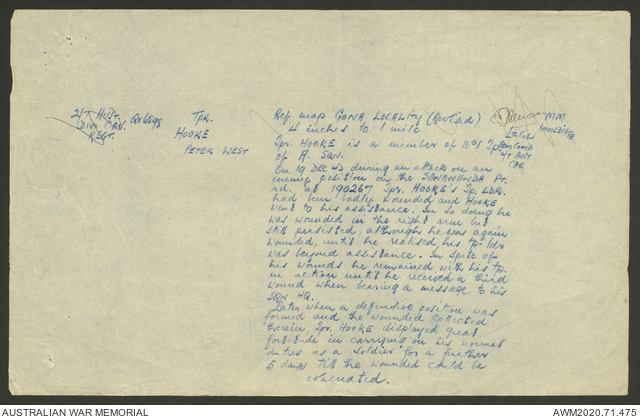 2/7 Aust.
Div. Cav.
REGT.
QX6898
Tpr.
HOOKE
PETER WEST
Ref map GONA LOCALITY (Revised)
4 inches to 1 mile
Tpr. HOOKE is a member of No 1 Tp
of A. Sqn.
On 19 Dec 42 during an attack on an
enemy position on the SANANANDA Pt.
rd. at 190267 Tpr. HOOKE's Tp. LDR.
had been badly wounded and HOOKE
went to his assistance. In so doing he
was wounded in the right arm but
still persisted, although he was again
wounded, until he realised his tp ldr
was beyond assistance. In spite of
his wounds he remained with his tp.
in action until he received a third
wound when bearing a message to his
SQN HQ.
Later when a defensive position was
formed and the wounded collected
therein, Tpr. HOOKE displayed great
fortitude in carrying on his normal
duties as a soldier for a further
5 days till the wounded could be
evacuated.
Lt Col
Comd
2/7 AUST
CAV.
MM
Immediate
AUSTRALIAN WAR MEMORIAL
AWM2020.71.475